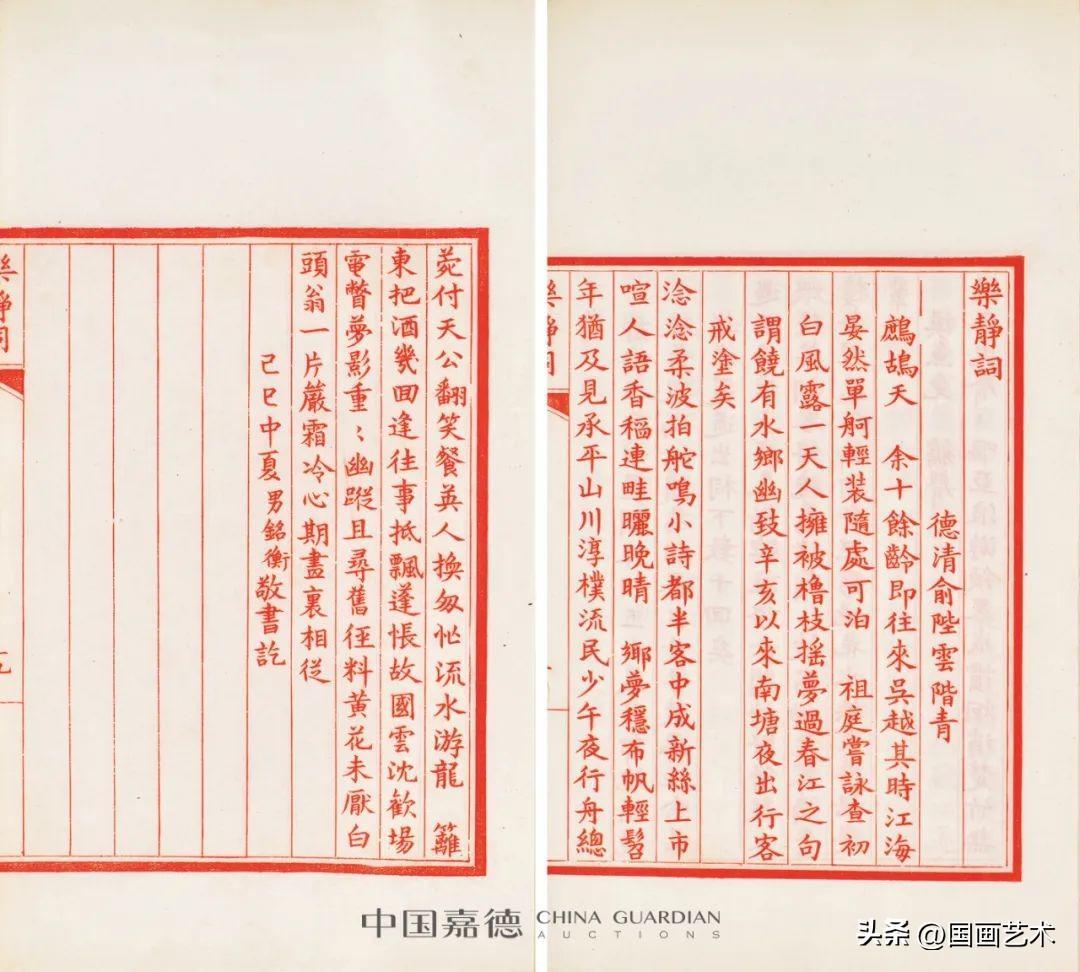 樂靜詞
德清俞陛雲階青
鷓鴣天　余十餘齡即往來吳越其時江海
晏然單舸輕裝隨處可泊　祖庭嘗詠查初
白風露一天人擁被櫓枝搖夢過春江之句
謂饒有水鄉幽致辛亥以來南塘夜出行客
戒塗矣
淰淰柔波拍舵鳴小詩都半客中成新絲上市
喧人語香稻連畦曬晚晴　鄉夢穩布帆輕髫
年猶及見承平山川淳樸流民少午夜行舟總
樂靜詞
茺付天公翻笑餐英人換匆忙流水游龍　籬
東把酒幾回逢往事抵飄蓬悵故國雲沈歡場
電瞥夢影重〻幽蹤且尋舊徑料黃花未厭白
頭翁一片嚴霜冷心期盡裏相從
己巳中夏男銘衡敬書訖
樂靜詞
九
中国嘉德 CHINA GUARDIAN
AUCTIONS
头条 @国画艺术